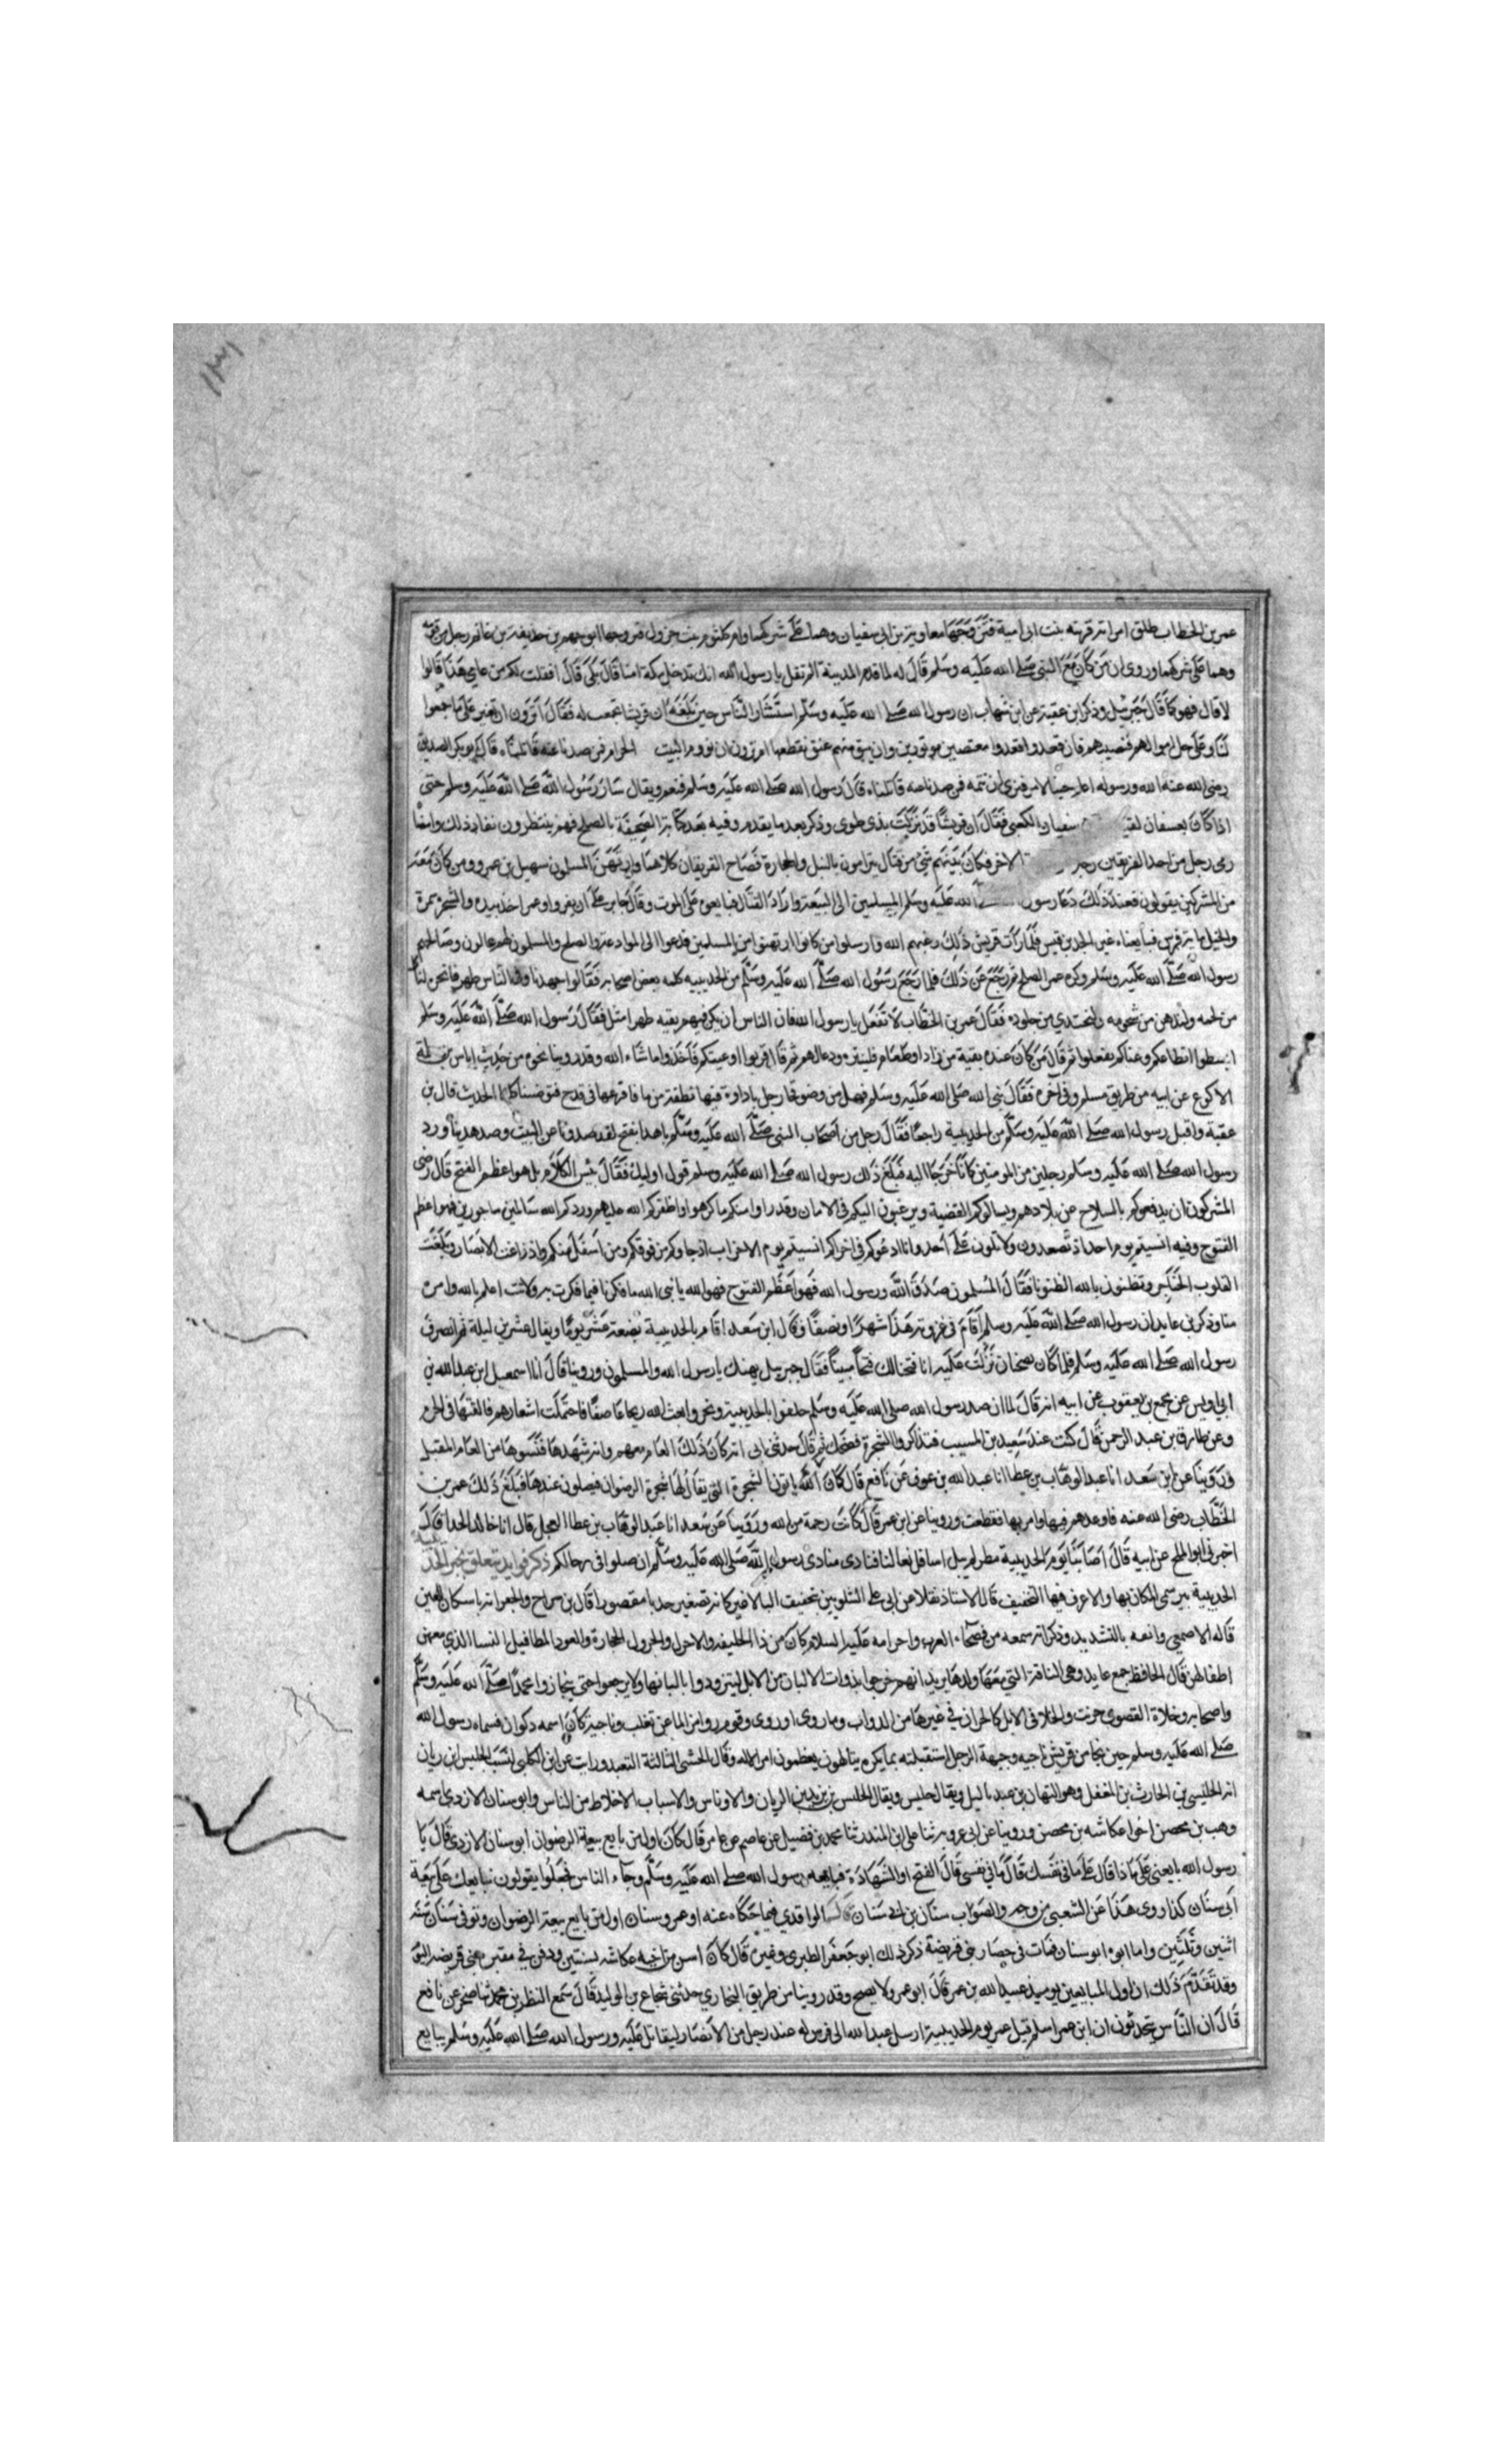 ١٣١
عمر بن الخطاب طلق امراته قريبه بنت ابى امية فتزوجها معاوية بن ابى سفيان وهما على شركهما وام كلثوم بنت جرول فتزوجها ابو جهم بن حذيفة بن غانم رجل من قومه
وهما على شركهما وروى ان من كان مع النبى صلى الله عليه وسلم قال له لما قدم المدينة الم تقل يا رسول الله انك تدخل مكة امنا قال بلى قال افقلت لكم من عامى هذا قالوا
لا قال فهو كما قال جبريل وذكر ابن عقبة عن ابن شهاب ان رسول الله صلى الله عليه وسلم استشار الناس حين بلغه ان قريشا جمعت له فقال اترون ان نغير على ما جمعوا
لنا وعلى جل اموالهم فنصيبهم فان قعدوا قعدوا معتصمين موتورين وان يبق منهم عنق نقطعها ام ترون ان نووم البيت الحرام فمن صدنا عنه قاتلناه قال ابو بكر الصديق
رضى الله عنه الله ورسوله اعلم جينا لامر فنرى ان نتمه فمن صدنا عنه قاتلناه قال رسول الله صلى الله عليه وسلم فنعم ويقال سار رسول الله صلى الله عليه وسلم حتى
اذا كان بعسفان لقيه سفيان الكعبى فقال ان قريشا قد نزلت بذى طوى وذكر بعد ما يقدم وفيه بعد كتابة الصحيفة بالصلح فهم ينتظرون نفاذ ذلك وامضا
رمى رجل من احد الفريقين رجلا الاخر فكان بينهم شئ من قتال يترامون بالنبل والحجارة فصاح الفريقان كلاهما وارتهن المسلمون سهيل بن عمرو ومن كان معه
من المشركين يقولون فعند ذلك دعا رسول الله عليه وسلم المسلمين الى البيعة واراد القتال فبايعوه على الموت وقال جابر على ان يفروا وعمر اخذ بيده والشجرة سمرة
والخيل ماية فرس فبايعناه غير الجد بن قيس فلما رات قريش ذلك رعبهم الله فارسلوا من كانوا ارتهنوا من المسلمين فدعوا الى الموادعة والصلح والمسلمون لهم عالون وصالحهم
رسول الله صلى الله عليه وسلم وكره عمر الصلح ثم رجع عن ذلك فلما رجع رسول الله صلى الله عليه وسلم من الحديبيه كلمه بعض اصحابه فقالوا جهدنا وفى الناس ظهر فانحره لنا
من لحمه ولندهن من شحومه ولنحتدي من جلوده فقال عمر بن الخطاب لا تفعل يا رسول الله فان الناس ان يكن فيهم بقيه ظهر امثل فقال رسول الله صلى الله عليه وسلم
ابسطوا انطاعكم وعباكم ففعلوا ثم قال من كان عنده بقية من زاد او طعام فلينثره ودعا لهم ثم قال قربوا اوعيتكم فاخذوا ما شاء الله وقد روينا نحوه من حديث اياس بن سلمة
الاكوع عن ابيه من طريق مسلم وفى اخره فقال نبى الله صلى الله عليه وسلم فهل من وضو فجا رجل باداوة فيها نطفة من ما فافرغها فى قدح فتوضينا كلنا الحديث قال بن
عقبة واقبل رسول الله صلى الله عليه وسلم من الحديبية راجعا فقال رجل من اصحاب النبى صلى الله عليه وسلم ما هدا بفتح لقد صدونا عن البيت وصد هدينا ورد
رسول الله صلى الله عليه وسلم رجلين من المومنين كانا خرجا اليه فبلغ ذلك رسول الله صلى الله عليه وسلم قول اوليك فقال بئس الكلام بل هو اعظم الفتح قال رضى
المشركون ان يدفعوكم بالسلاح عن بلادهم ويسالوكم القضية ويرغبون اليكم فى الامان وقد راوا منكم ما كرهوا واظفركم الله عليهم وردكم الله سالمين ماجورين فهو اعظم
الفتوح وفيه انسيتم يوم احد اذ تصعدون ولا تلون على احد وانا ادعوكم فى اخراكم انسيتم يوم الاحزاب اذ جاوكم من فوقكم ومن اسفل منكم واذ زاغت الابصار وبلغت
القلوب الحناجر وتظنون بالله الظنونا فقال المسلمون صدق الله ورسول الله فهو اعظم الفتوح فهو الله يا نبى الله ما فكرنا فيما فكرت به ولانت اعلم بالله وامره
منا وذكر بن عايد ان رسول الله صلى الله عليه وسلم اقام فى غزوته هذا شهرا ونصفا وقال ابن سعد اقام بالحديبية بضعة عشر يوما ويقال عشرين ليلة ثم انصرف
رسول الله صلى الله عليه وسلم فلما كان بضجنان نزلت عليه انا فتحنا لك فتحا مبينا فقال جبريل يهنك يا رسول الله والمسلمون وروينا قال انا اسمعيل ابن عبد الله بن
ابى اويس عن مجمع بن يعقوب عن ابيه انه قال لما ان صد رسول الله صلى الله عليه وسلم حلقوا بالحديبية ونحروا بعث الله ريحا عاصفا فاحتملت اشعارهم فالقتها فى الحرم
وعن طارق بن عبد الرحمن قال كنت عند سعيد بن المسيب فتذاكروا الشجرة فضحك ثم قال حدثنى ابى انه كان ذلك العام معهم وانه شهدها فنسوها من العام المقبل
وروينا عن ابن سعد انا عبد الوهاب بن عطا انا عبد الله بن عوف عن نافع قال كان الله ياتونا الشجرة التى يقال لها شجرة الرضوان فيصلون عندها فبلغ ذلك عمر بن
الخطاب رضى الله عنه فاوعدهم فيها وامر بها فقطعت وروينا عن ابن عمر قال كانت رحمة من الله وروينا عن سعد انا عبد الوهاب بن عطا العجلى قال انا خالد الحذا قال
اخبرنى ابو المليح عن ابيه قال اصابنا يوم الحديبية مطر لم يبل اسافل نعالنا فنادى منادى رسول الله صلى الله عليه وسلم ان صلوا فى رحالكم ذكر فوايد تتعلق بخبر الحديبية
الحديبية بير سمى المكان بها والاعرف فيها التخفيف قال الاستاذ نقلا عن ابى على الشلوبين بتخفيف اليا لا غير كانه تصغير حدبا مقصورا قال بن سراج والجعرانه باسكان العين
قاله الاصمعى وانعه بالتشديد وذكر انه سمعه من فصحاء العرب واحرامه عليه السلام كان من ذا الحليفه والاجرل والجرول الحجارة والعود المطافيل النسا الذى معهن
اطفالهن قال الحافظ جمع عايد وهى الناقة التى معها ولدها يريد انهم خرجوا بذوات الالبان من الابل ليتزودوا بالبانها ولا يرجعوا حتى يناجزوا محمدا صلى الله عليه وسلم
واصحابه وخلاة القصوى حرنت والخلا فى الابل كالحران فى غيرها من الدواب وما روى اوروى وقوم رووا من الما عن تغلب وناجية كان اسمه دكوان فسماه رسول الله
صلى الله عليه وسلم حين نجا من قريش ناجيه وجبهة الرجل استقبلته بما يكره يتالهون يعظمون امر الاله وقال الخشنى المثالثة التعبد ورايت عن ابن الكلبى نسب الحليس ابن ريان
انه الحليس بن الحارث بن المغفل وهو التيهان بن عبد ياليل ويقال حليس ويقال الحلس بن يزيد بن الريان والاوناس والاسباب الاخلاط من الناس وابو سنان الازدى اسمه
وهب بن محصن اخوا عكاشه بن محصن وروينا عن ابى عروبه ثنا على ابن المنذر ثنا محمد بن فضيل عن عاصم عن عامر قال كان اول من بايع بيعة الرضوان ابو سنان الازدى قال يا
رسول الله بايعنى على ماذا قال على ما فى نفسك قال ما فى نفسى قال الفتح او الشهادة فبايعه رسول الله صلى الله عليه وسلم وجاء الناس فجعلوا يقولون نبايعك على بيعة
ابى سنان كذا روى هذا عن الشعبى من وجه والصواب سنان بن ابى سنان قال الواقدي فيما حكاه عنه ابو عمر وسنان اول من بايع بيعة الرضوان وتوفى سنان سنة
اثنين وثلثين واما ابوه ابو سنان فمات فى حصار بنى قريضة ذكر ذلك ابو جعفر الطبرى وغيره قال كان اسن من اخيه عكاشه بسنتين ودفن فى مقبرة بنى قريضه اليوم
وقد تقدم ذلك ان اول المبايعين يوميذ عبد الله بن عمر قال ابو عمر ولا يصح وقد روينا من طريق البخاري حدثنى شجاع بن الوليد قال سمع النظر بن محمد ثنا صخر عن نافع
قال ان الناس يتحدثون ان ابن عمر اسلم قبل عمر يوم الحديبية ارسل عبد الله الى فرس له عند رجل من الانصار ليقاتل عليه ورسول الله صلى الله عليه وسلم يبايع